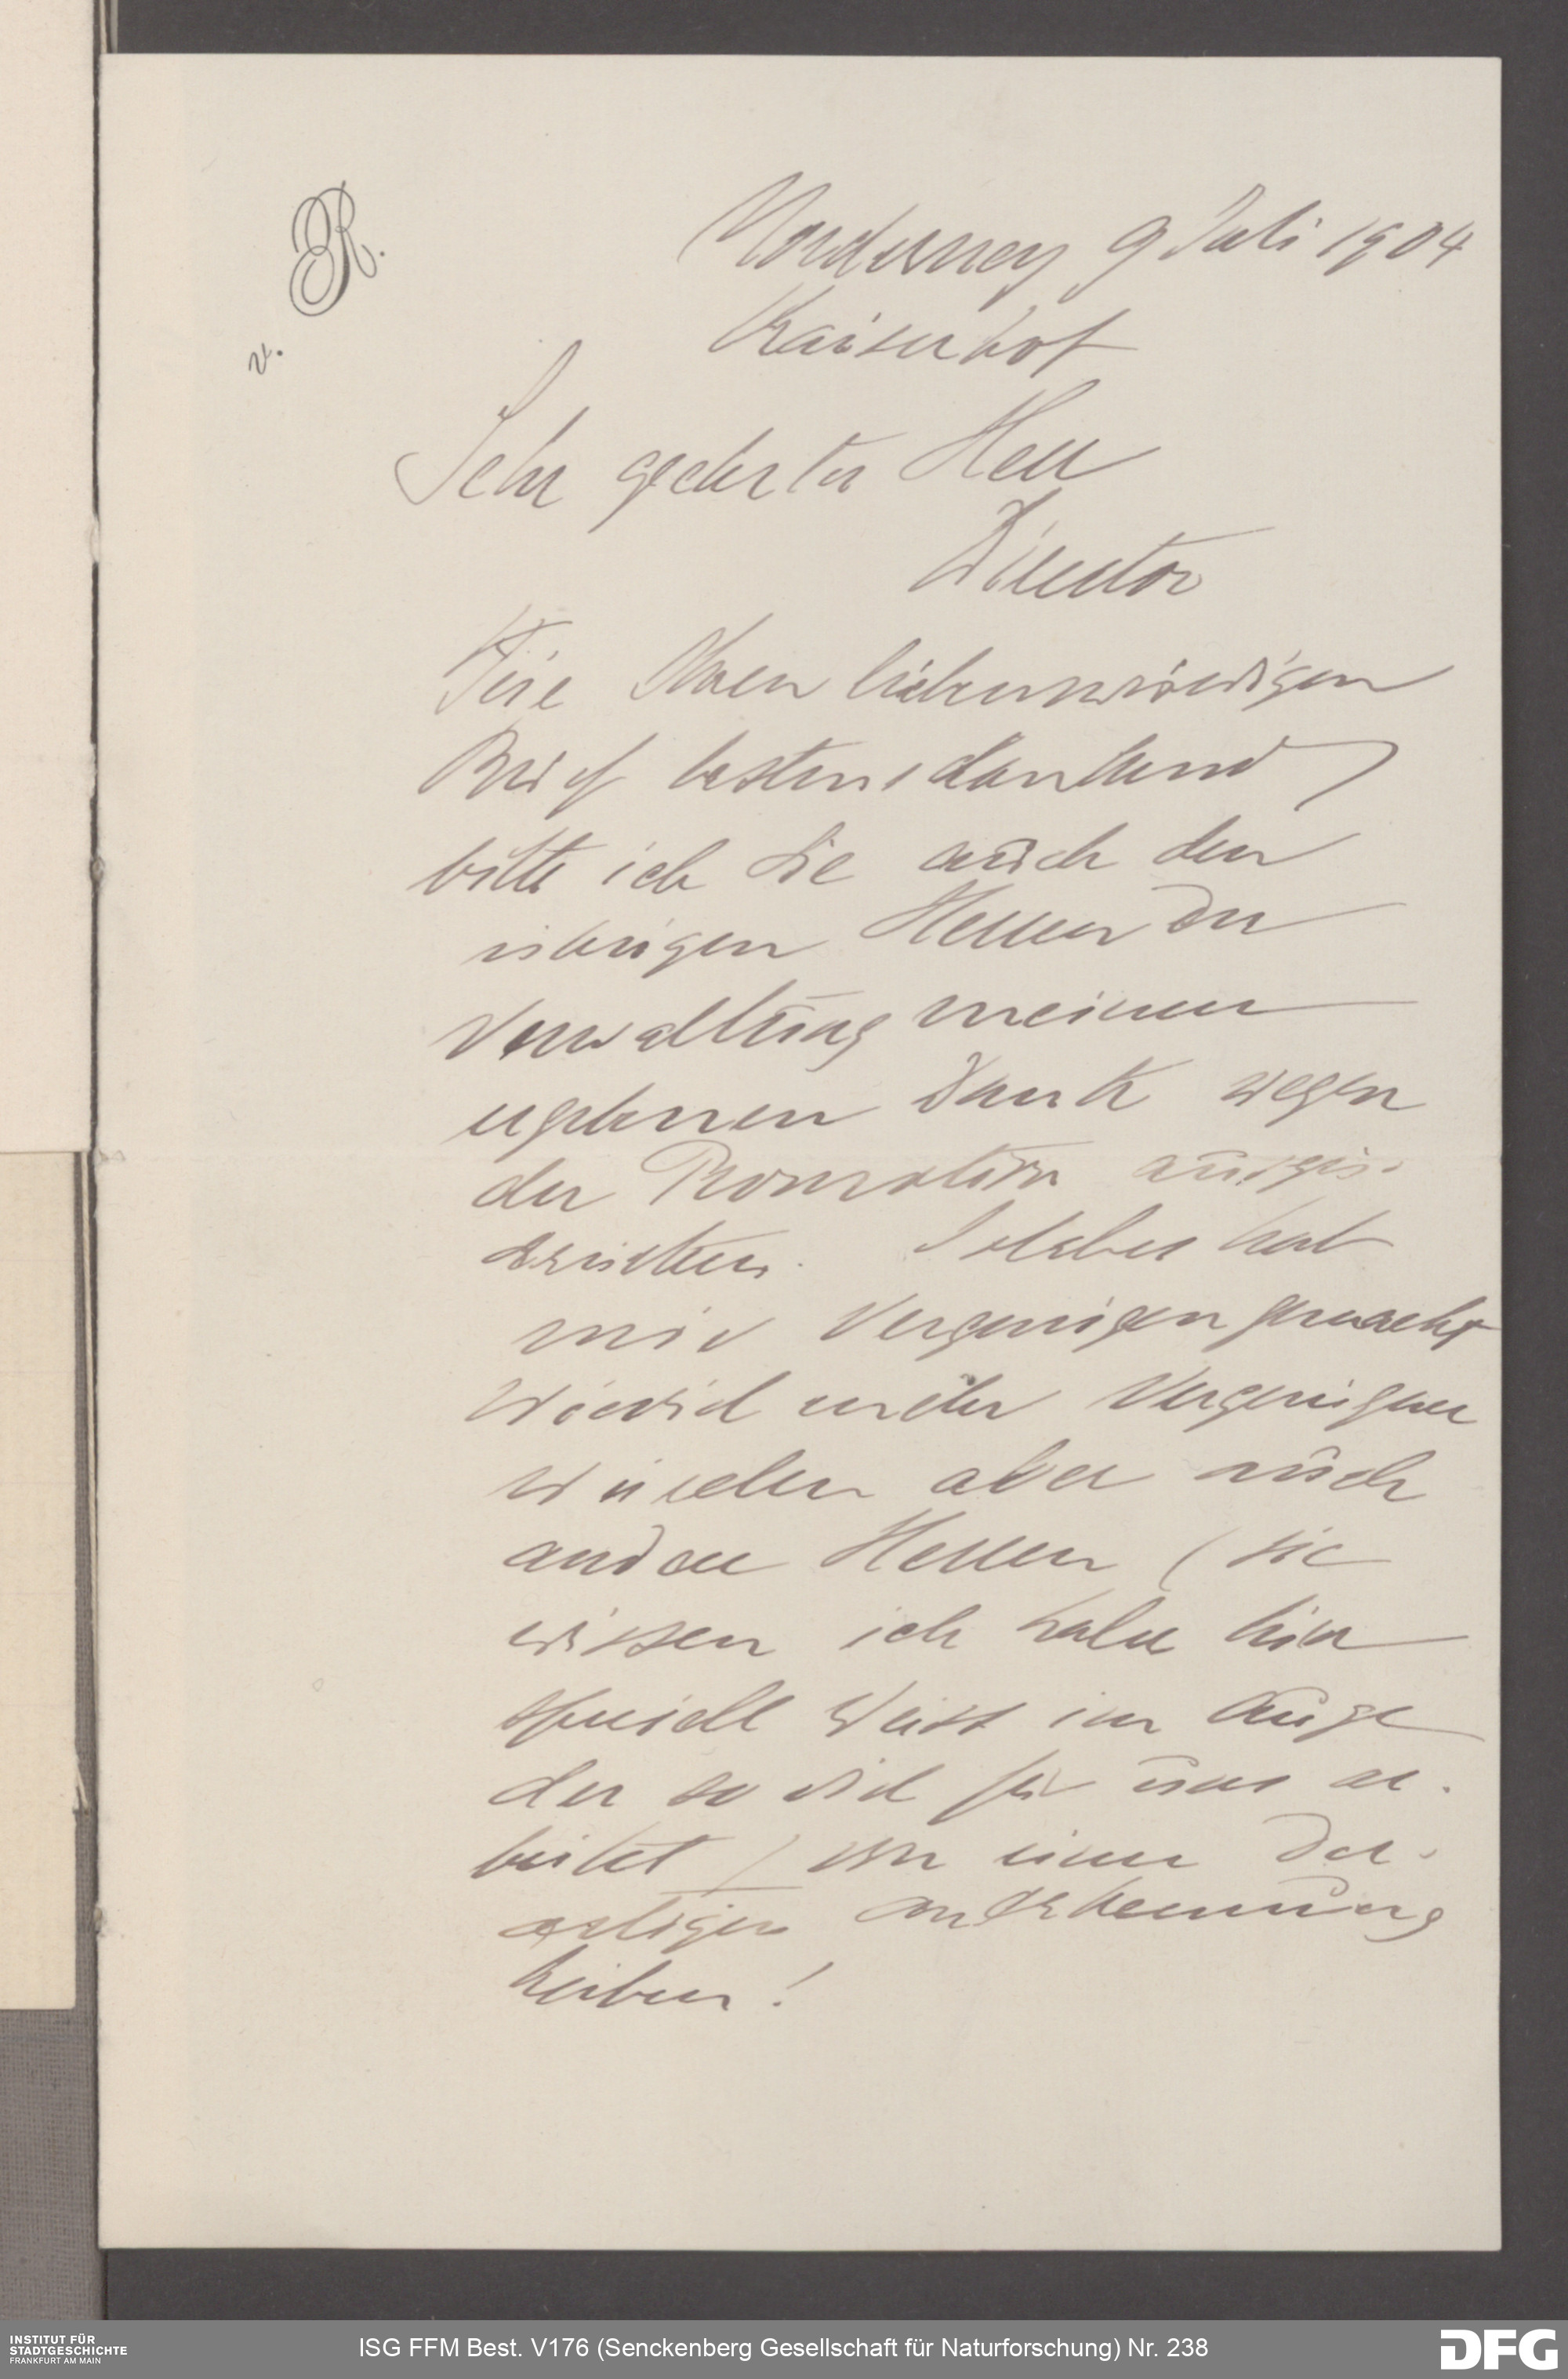 ER.
v.
Norderney 9 Juli 1904
Kaiserhof
Sehr geehrter Herr
Director
Für Ihren liebenswürdigen
Brief bestens dankend
bitte ich Sie auch den
übrigen Herren der
Verwaltung meinen
ergebenen Dank wegen
der Promotion auszu-
drücken. Solches hat
mir Vergnügen gemacht
wieviel mehr Vergnügen
würden aber auch
andere Herren (sie
wissen ich habe hier
speciell Weiss im Auge
der so viel für uns ar-
beitet) von einer der-
artigen Anerkennung
haben!
INSTITUT FÜR
STADTGESCHICHTE
FRANKFURT AM MAIN
ISG FFM Best. V176 (Senckenberg Gesellschaft für Naturforschung) Nr. 238
DFG